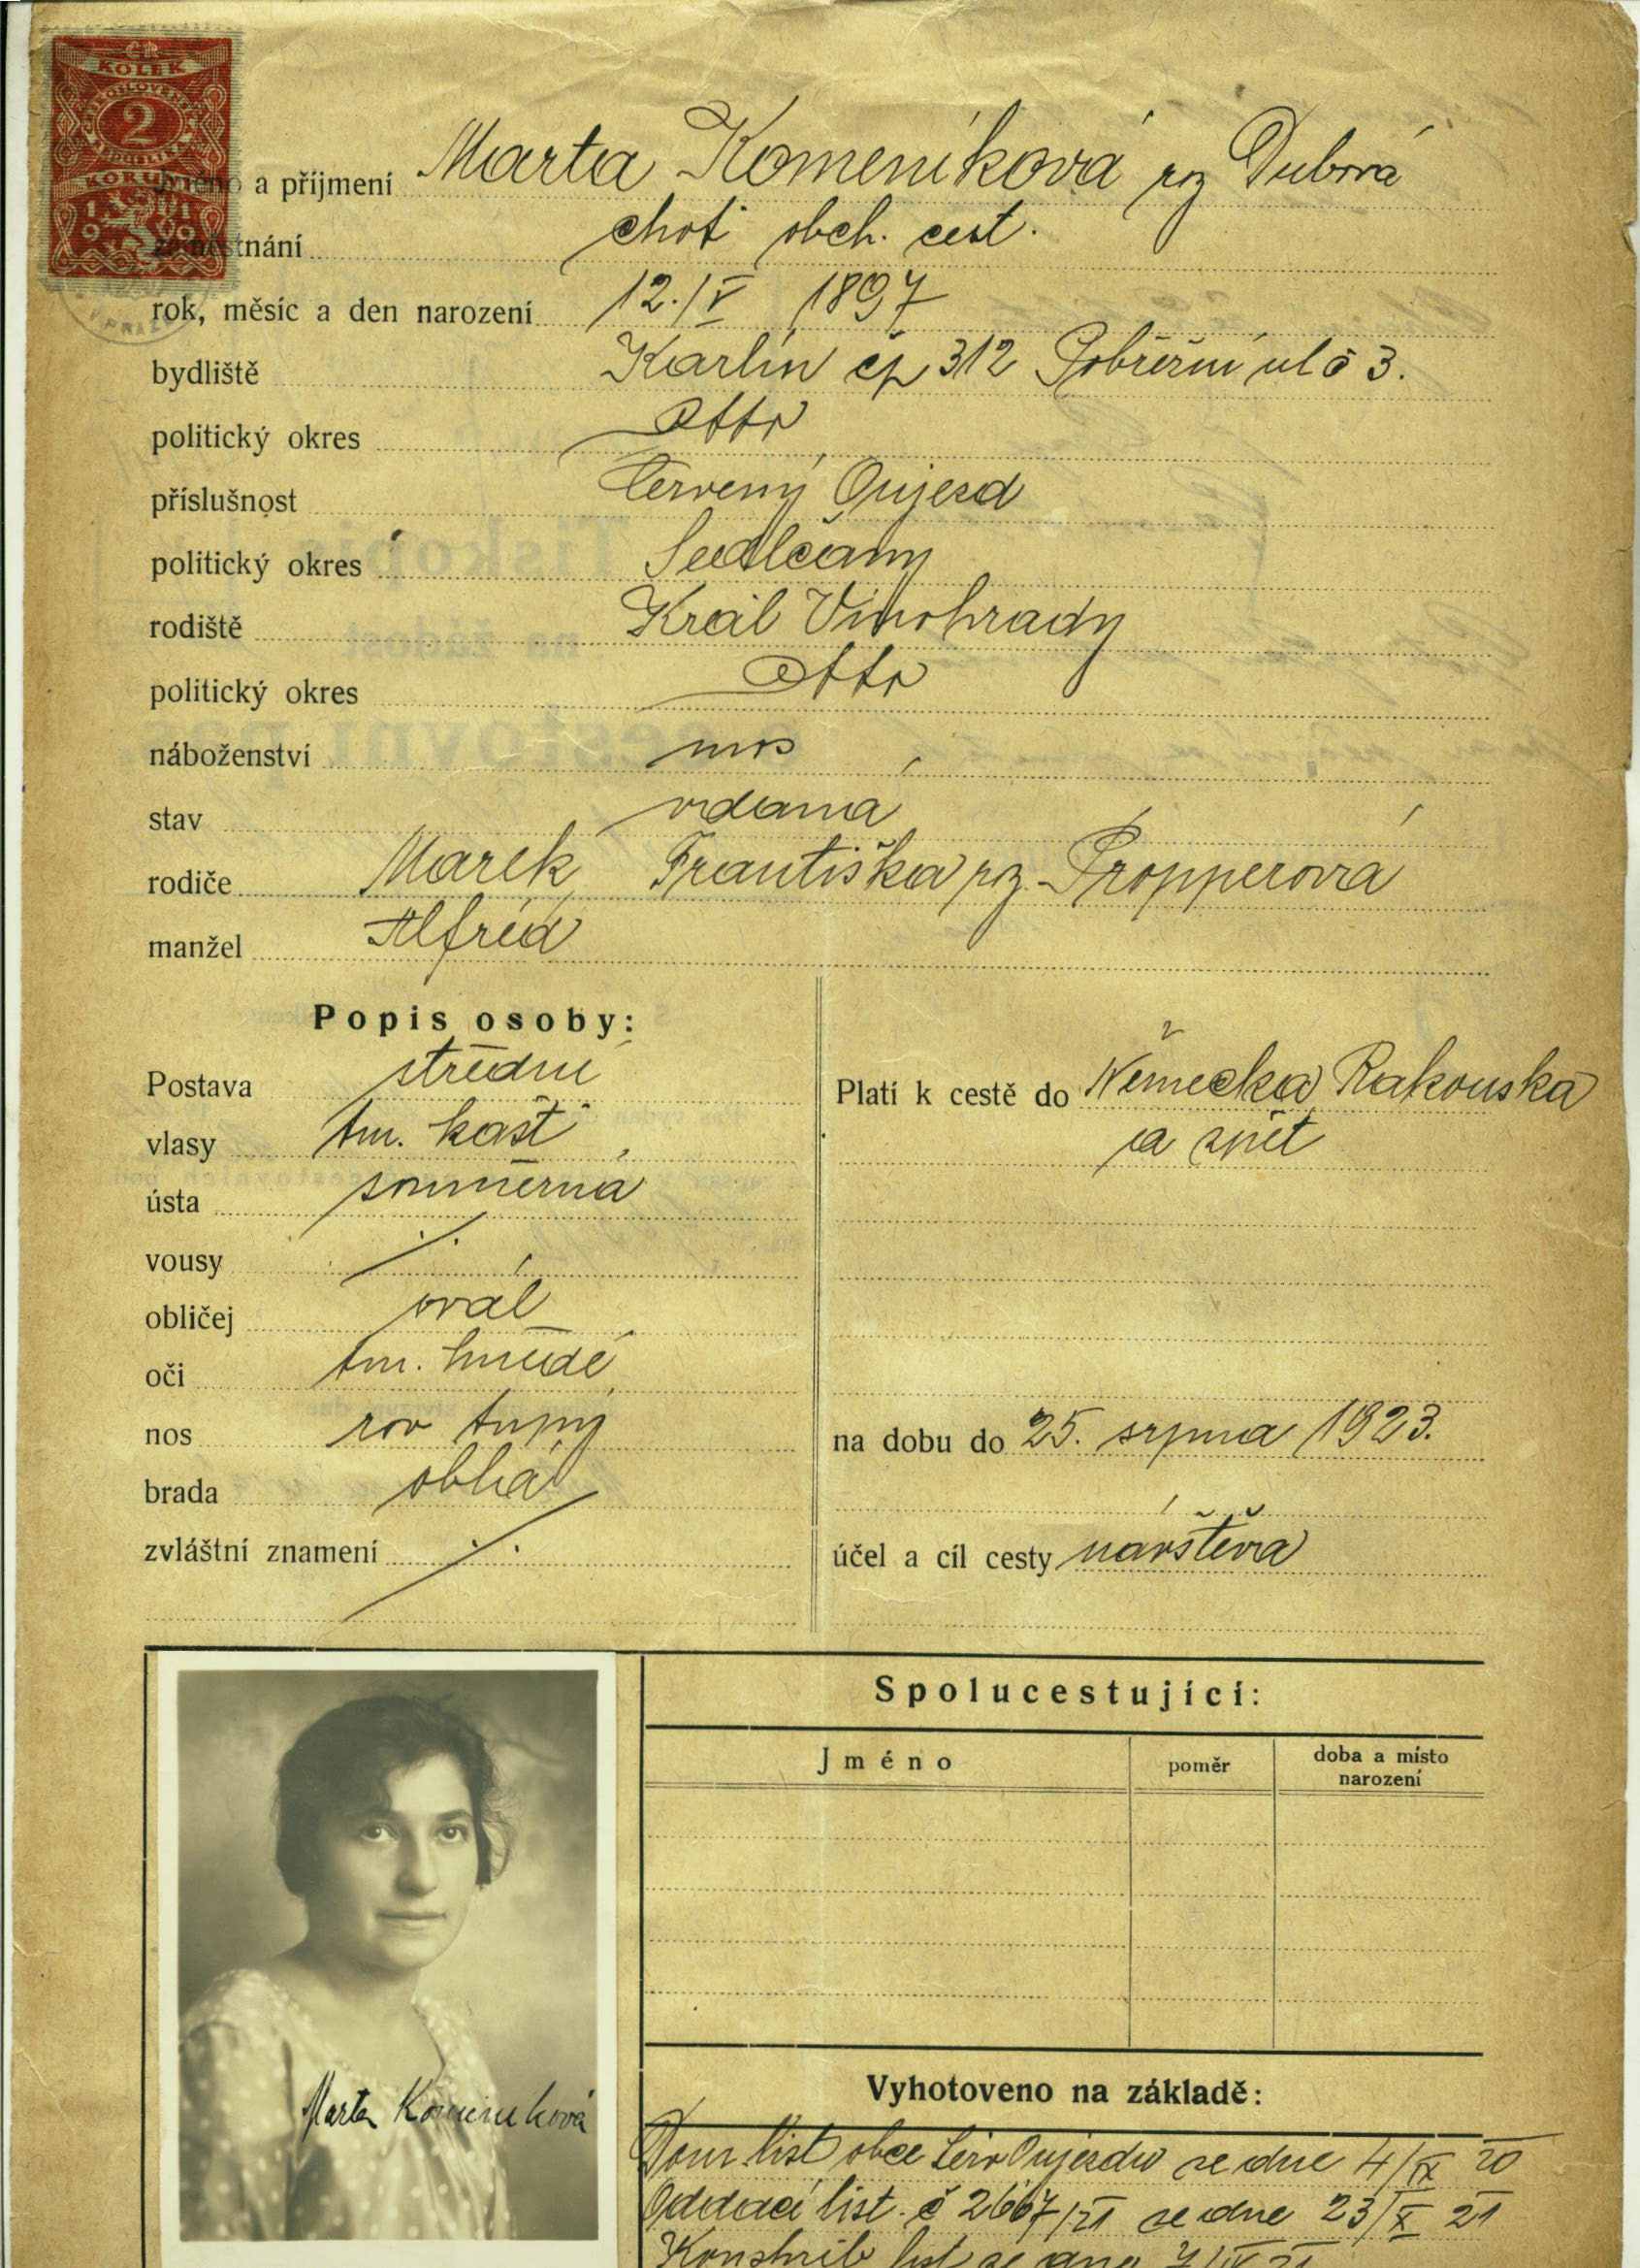 ČR
KOLEK
2
KORUNY
Jméno a příjmení Marta Komeníková roz Dubová
zaměstnání choť obch. cest.
rok, měsíc a den narození 12./V 1897
bydliště Karlín čp 312 Pobřežní ul č 3.
politický okres detto
příslušnost Červený Oujezd
politický okres Sedlčany
rodiště Král Vinohrady
politický okres detto
náboženství mos
stav vdaná
rodiče Marek Františka roz. Propperová
manžel Alfréd
Popis osoby:
Postava střední
vlasy tm. kašt
ústa souměrná
vousy ./.
obličej ovál
oči tm. hnědé
nos rov tupý
brada oblá
zvláštní znamení ./.
Platí k cestě do Německa Rakouska
a zpět
na dobu do 25. srpna 1923.
účel a cíl cesty návštěva
Marta Komeníková
Spolucestující:
Jméno poměr doba a místo narození
Vyhotoveno na základě:
Dom. list obce Červ Oujezdu ze dne 4/IX 20
Oddací list. č 2667/21 ze dne 23/X 21